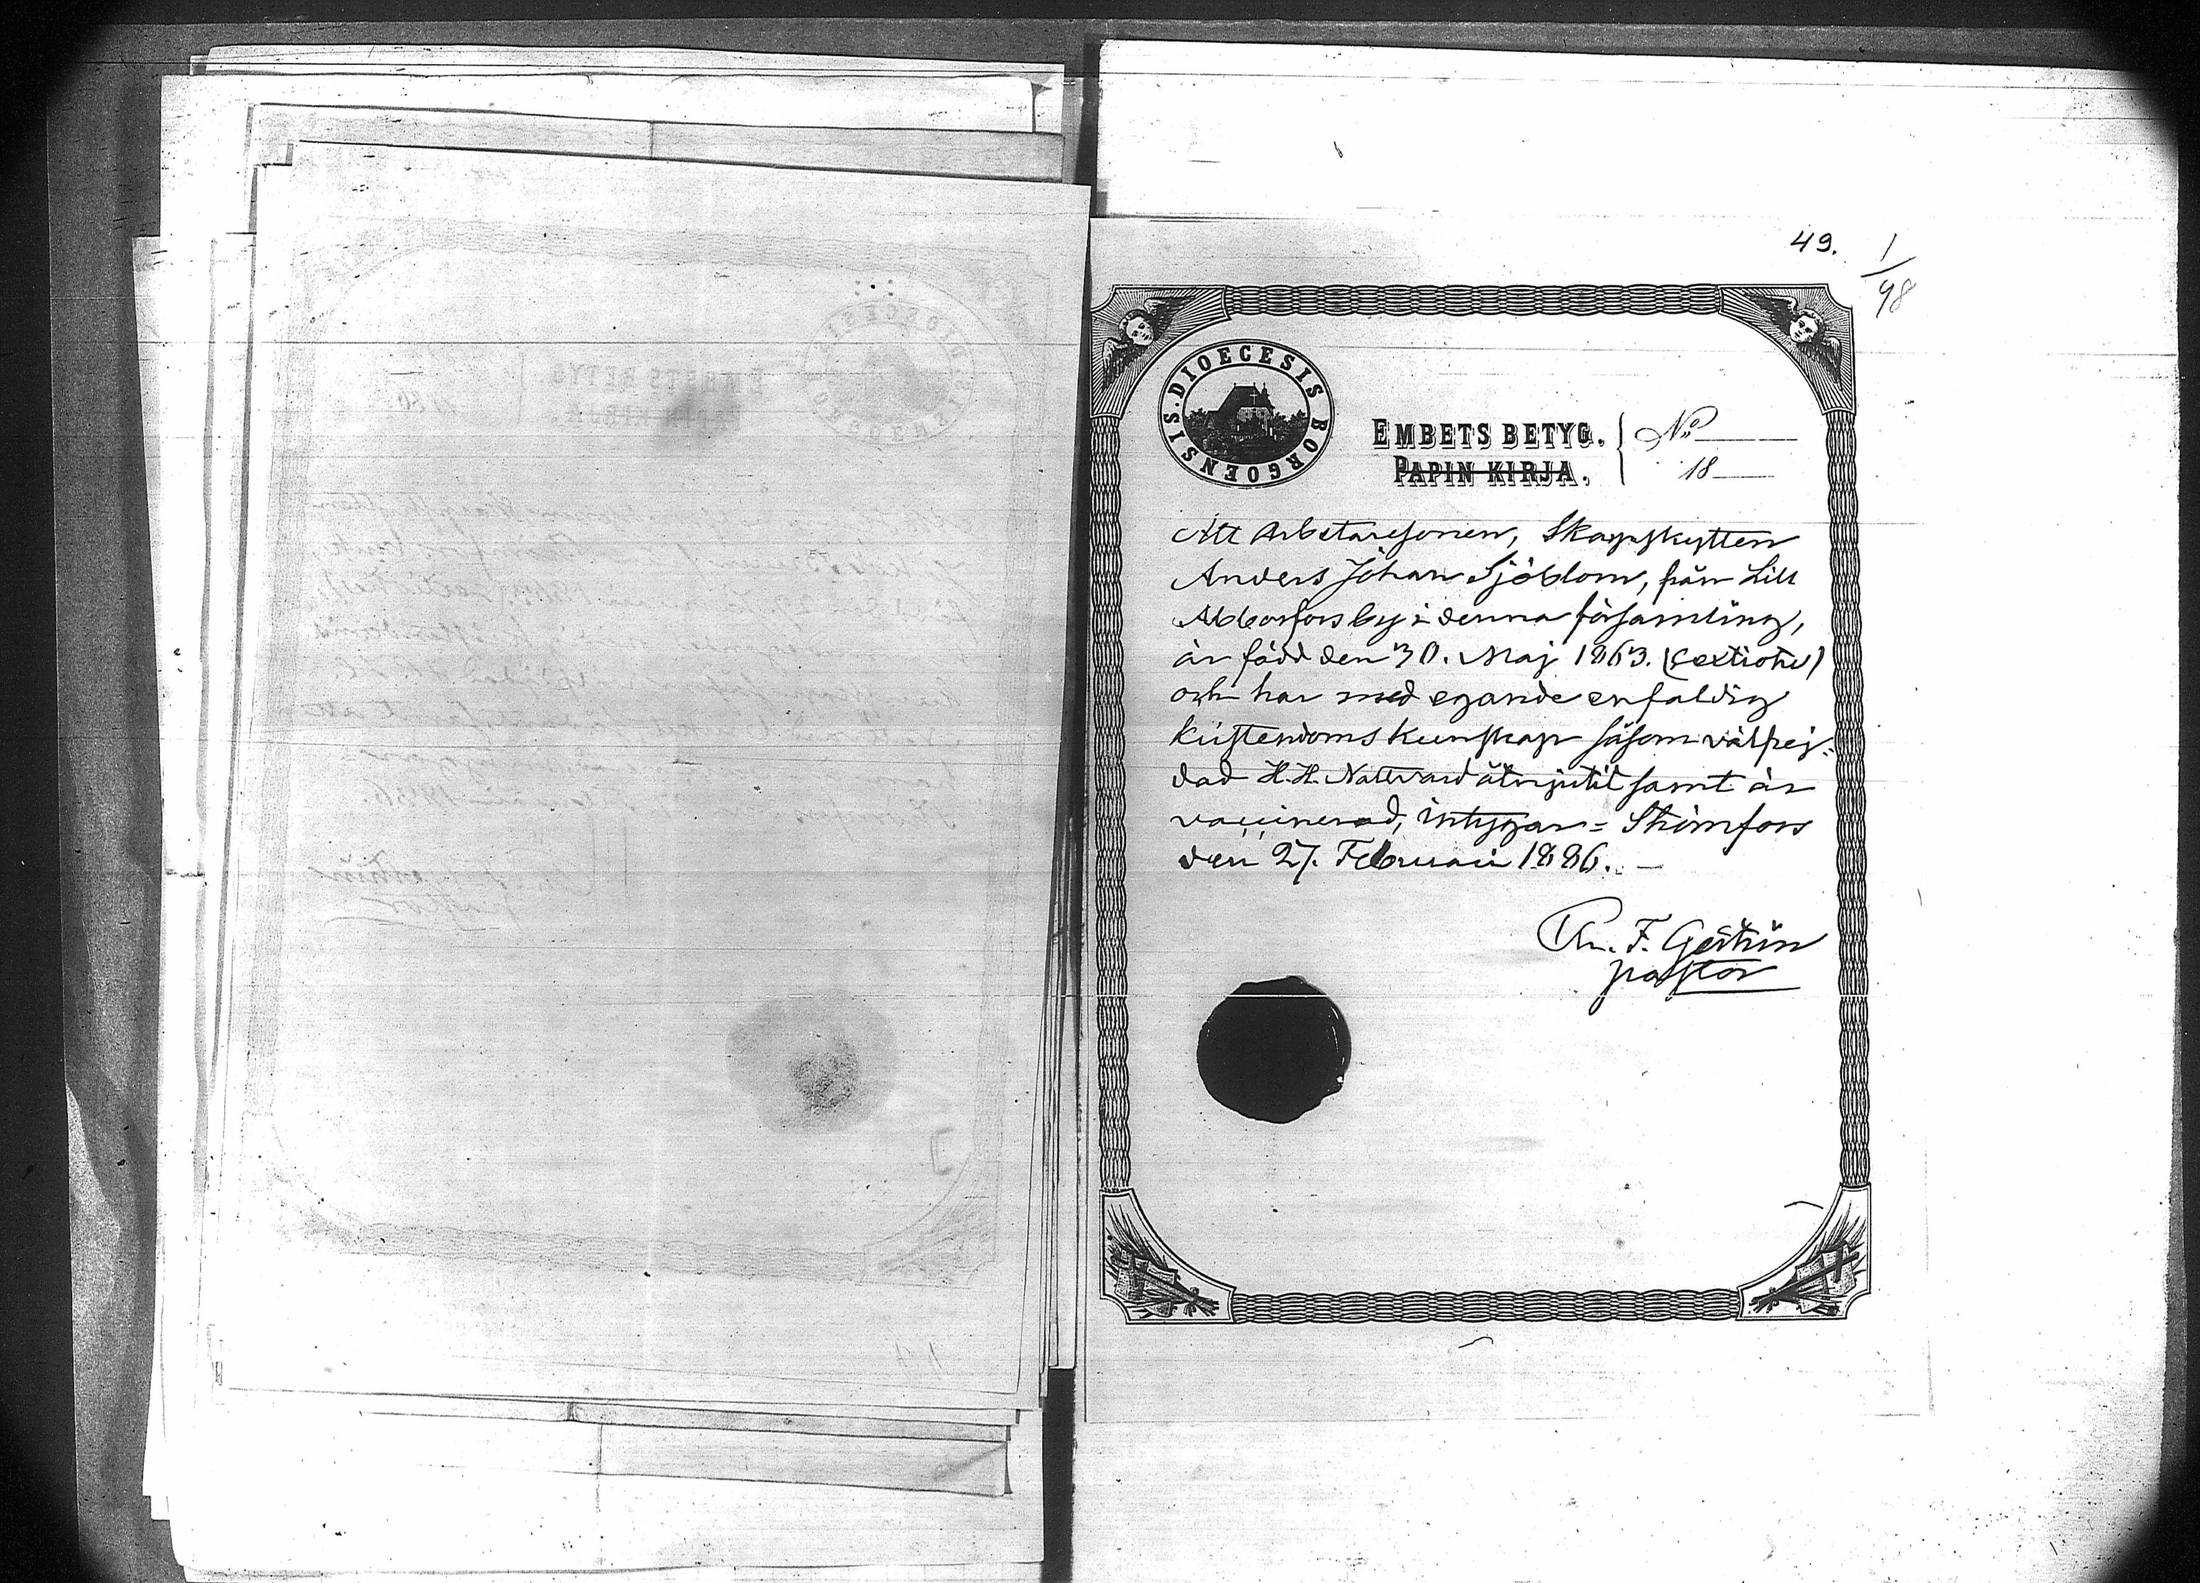 49. 1/48
DIOECESIS BORGOENSIS.
EMBETS BETYG. No
PAPIN KIRJA. 18
Att Arbetaresonen, Skarpskytten
Anders Johan Sjöblom, från Lill
Abborfors by i denna församling,
är född den 30. Maj 1863. (sextiotre)
och har med egande enfaldig
kristendomskunskap såsom välfrej-
dad H. H. Nattvard åtnjutit samt är
vaccinerad, intygar = Strömfors
den 27. Februari 1886. —
F.
pastor